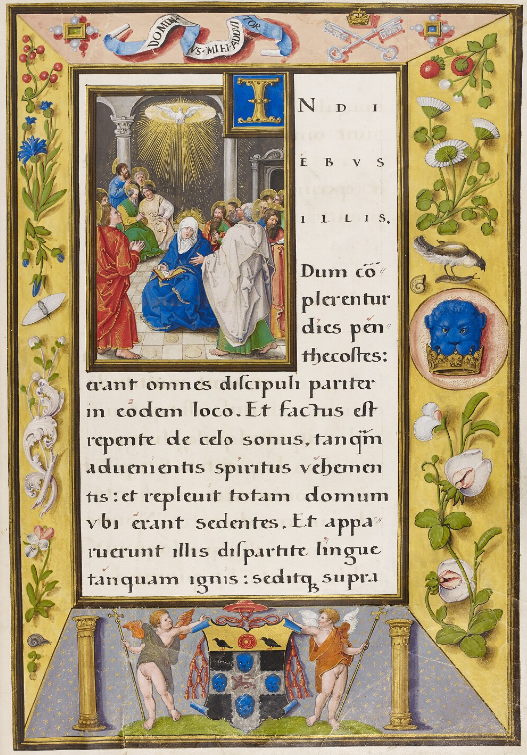 DOMIN
VS·MIHI
ADIVTOR
IN DI
ÈBVS
ILLIS.
Dum cō
plerentur
dies pen
thecostes:
erant omnes discipuli pariter
in eodem loco. Et factus est
repente de celo sonus, tanq̃m
aduenientis spiritus vehemen
tis: et repleuit totam domum
vbi erant sedentes. Et appa
ruerunt illis dispartite lingue
tanquam ignis: seditq; supra